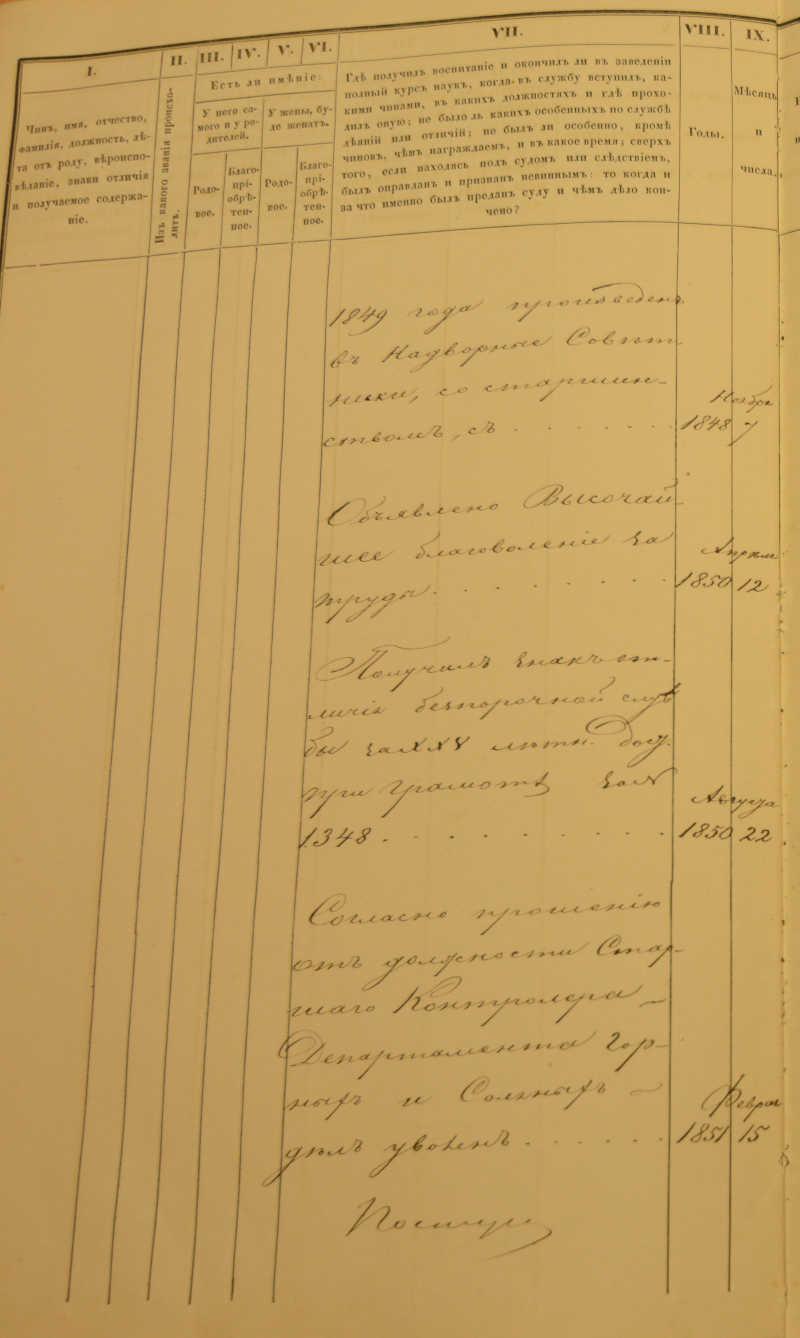 I.
II.
III.
IV.
V.
VI.
VII.
VIII.
IX.
Чинъ, имя, отчество,
фамилія, должность, лѣ-
та отъ роду, вѣроиспо-
вѣданіе, знаки отличія
и получаемое содержа-
ніе.
Изъ какого званія происхо-
дитъ.
Есть ли имѣніе:
У него са-
мого и у ро-
дителей.
У жены, бу-
де женатъ.
Родо-
вое.
Благо-
прі-
обрѣ-
тен-
ное.
Родо-
вое.
Благо-
прі-
обрѣ-
тен-
ное.
Гдѣ получилъ воспитаніе и окончилъ ли въ заведеніи
полный курсъ наукъ, когда въ службу вступилъ, ка-
кими чинами, въ какихъ должностяхъ и гдѣ прохо-
дилъ оную; не было ль какихъ особенныхъ по службѣ
дѣяній или отличій; не былъ ли особенно, кромѣ
чиновъ, чѣмъ награждаемъ, и въ какое время; сверхъ
того, если находясь подъ судомъ или слѣдствіемъ,
былъ оправданъ и признанъ невиннымъ: то когда и
за что именно былъ преданъ суду и чѣмъ дѣло кон-
чено?
Годы.
Мѣсяцъ
и
числа.
1849 года произведенъ
въ Надворные Совѣт-
ники, со старшин-
ствомъ, съ . . . . . . 1848 Ноября 7
Объявлено Высочай-
шее благоволеніе за
труды . . . . . . . 1850 Апрѣля 12
Получилъ знакъ от-
личія безпорочной служ
бы за XXV лѣтъ.
при грамотѣ за №
1348 . . . . . . . . 1850 Августа 22
Согласно прошенію
отъ должности Стар-
шаго Контролера
Департамента Гор-
ныхъ и Соляныхъ
дѣлъ уволенъ . . . . . 1851 Февраля 15